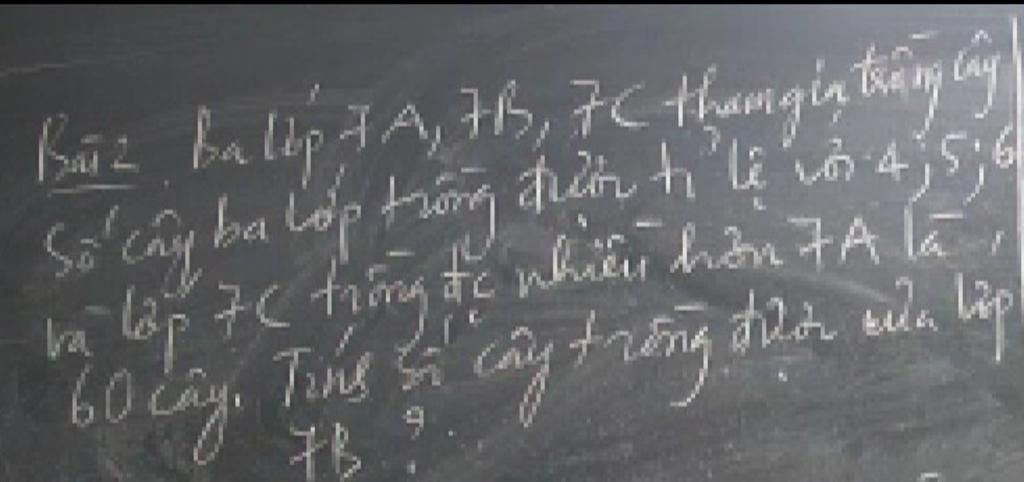 Bài 2. Ba lớp 7A, 7B, 7C tham gia trồng cây
Số cây ba lớp trồng được tỉ lệ với 4; 5; 6
và lớp 7C trồng đc nhiều hơn 7A là
60 cây. Tính số cây trồng được của lớp
7B?